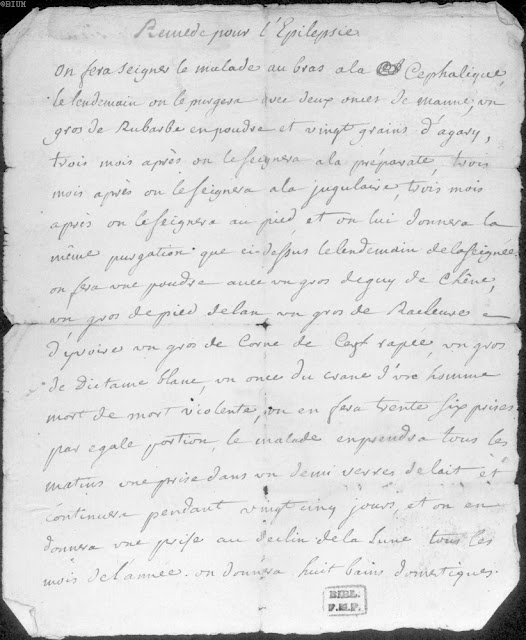 ©BIUM
Remede pour l'Epilepsie
On fera seigner le malade au bras a la Cephalique,
le lendemain on le purgera avec deux onces de manne, un
gros de Rubarbe en poudre et vingt grains d'agary,
trois mois après on le seignera a la préparate, trois
mois après on le seignera a la jugulaire, trois mois
après on le seignera au pied, et on lui donnera la
même purgation que ci-dessus le lendemain de la seignée.
on fera une poudre avec un gros de guy de Chêne,
un gros de pied delan un gros de Racleure
d'yvoire un gros de Corne de Cerf rapée, un gros
de dictame blanc, un once du crane d'une homme
mort de mort violente, on en fera trente six prises
par egale portion, le malade en prendra tous les
matins une prise dans un demi verres de lait et
continuera pendant vingt cinq jours, et on en
donnera une prise au declin de la Lune tous les
mois de l'année. on donnera huit bains domestiques.
BIBL.
F.M.P.